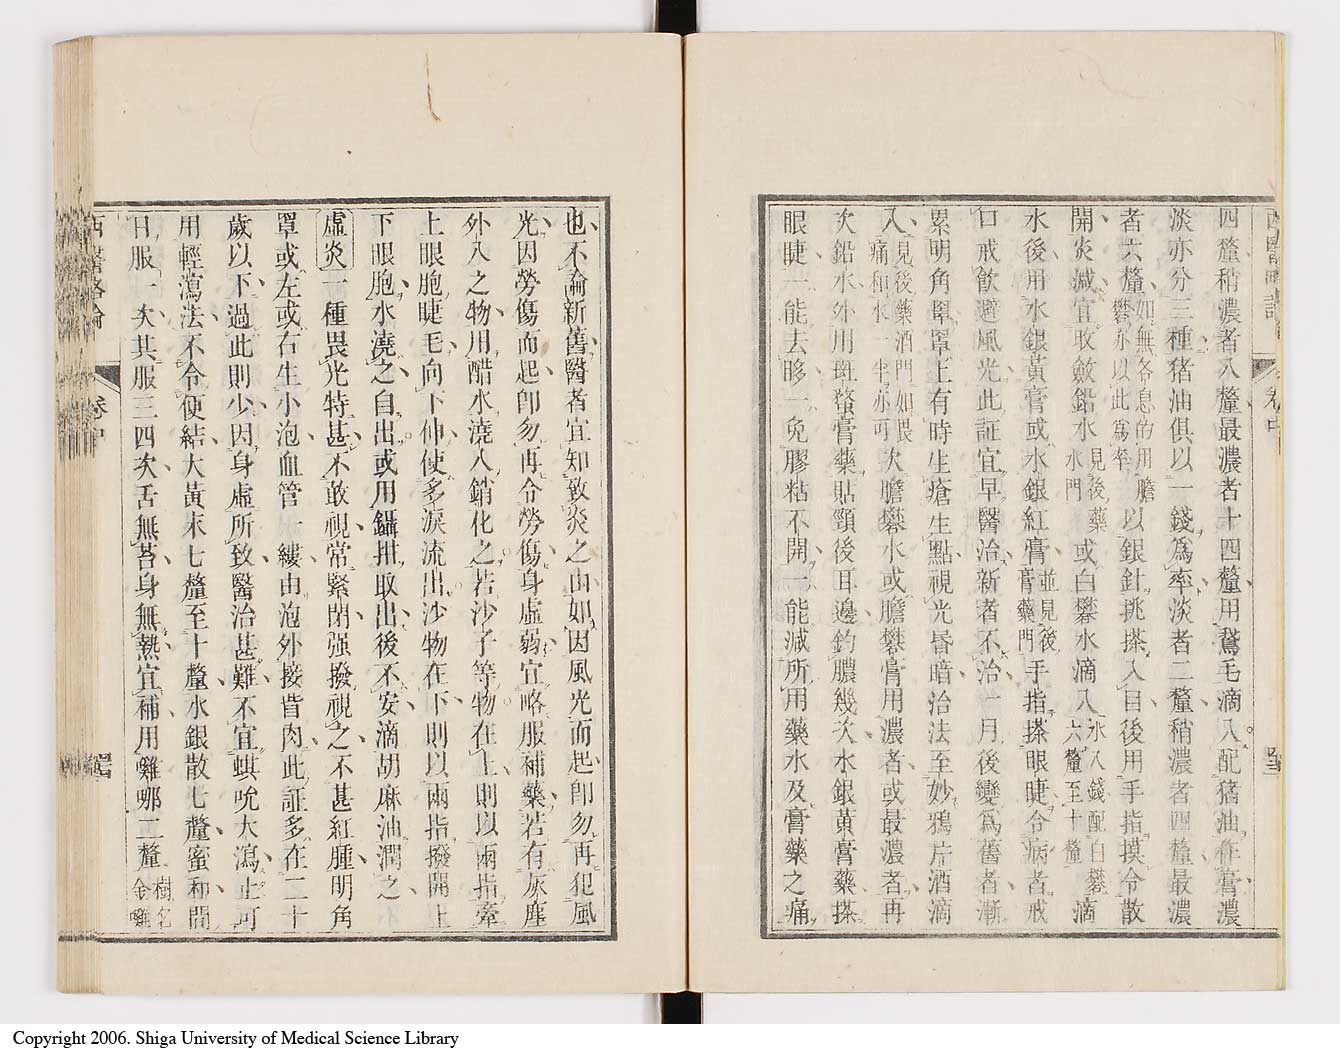 四釐稍濃者八釐最濃者十四釐用鵞毛滴入配猪油作膏濃
淡亦分三種猪油俱以一錢爲率淡者二釐稍濃者四釐最濃
者六釐如無各息的用膽礬亦以此爲率以銀針挑搽入目後用手指摸令散
開炎減宜收斂鉛水見後藥水門或白礬水滴入水八錢配白礬六釐至十釐滴
水後用水銀黃膏或水銀紅膏並見後膏藥門手指搽眼睫令病者戒
口戒飲避風光此証宜早醫治新者不治一月後變爲舊者漸
累明角罩罩上有時生瘡生點視光昏暗治法至妙鴉片酒滴
入見後藥酒門如畏痛和水一半亦可次膽礬水或膽礬膏用濃者或最濃者再
次鉛水外用斑蝥膏藥貼頸後耳邊釣膿幾次水銀黃膏藥搽
眼睫一能去眵一免膠粘不開一能減所用藥水及膏藥之痛
也不論新舊醫者宜知致炎之由如因風光而起卽勿再犯風
光因勞傷而起卽勿再令勞傷身虛弱宜略服補藥若有灰塵
外入之物用醋水澆入銷化之若沙子等物在上則以兩指牽
上眼胞睫毛向下伸使多淚流出沙物在下則以兩指撥開上
下眼胞水澆之自出或用鑷拑取出後不安滴胡麻油潤之
虛炎一種畏光特甚不敢視常緊閉强撥視之不甚紅腫明角
罩或左或右生小泡血管一縷由泡外接眥肉此証多在二十
歲以下過此則少因身虛所致醫治甚難不宜蜞吮大瀉止可
用輕瀉法不令便結大黃末七釐至十釐水銀散七釐蜜和間
日服一次共服三四次舌無苔身無熱宜補用雞哪二釐樹名金雞
西醫略論
卷中